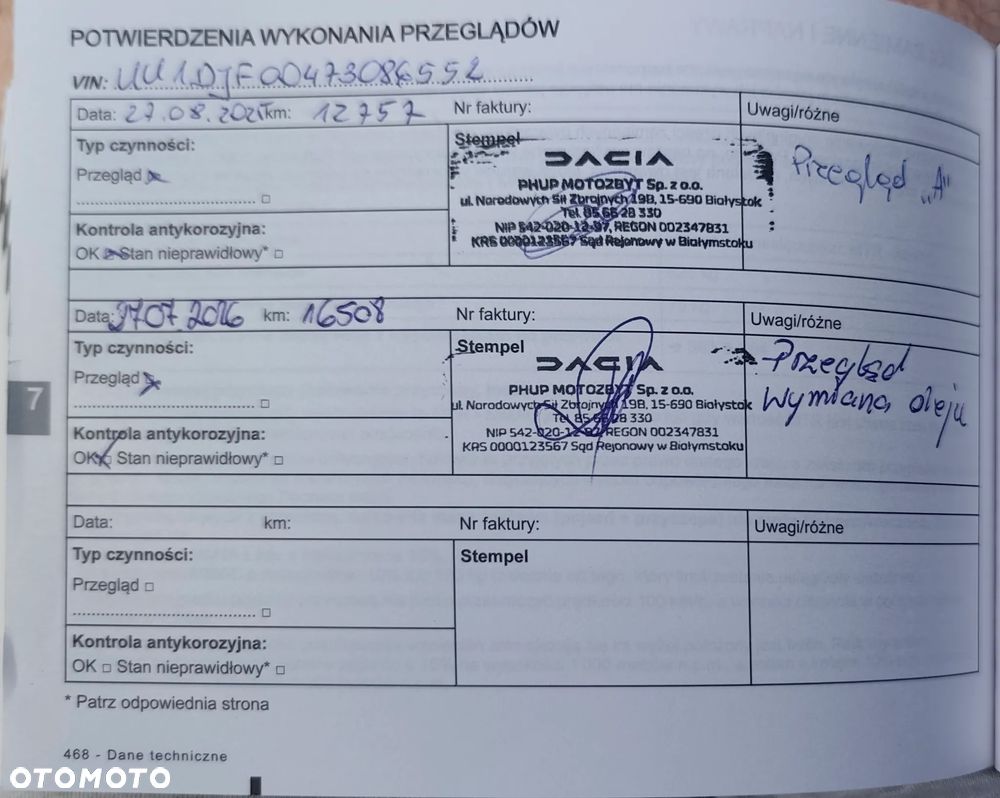 POTWIERDZENIA WYKONANIA PRZEGLĄDÓW
VIN: UU1DJF00473086552
Data: 27.08.2025 km: 12757 Nr faktury: Uwagi/różne
Typ czynności: Stempel
Przegląd Przegląd „A"
DACIA
PHUP MOTOZBYT Sp. z o.o.
ul. Narodowych Sił Zbrojnych 19B, 15-690 Białystok
Tel. 85 66 28 330
NIP 542-020-12-97, REGON 002347831
KRS 0000123567 Sąd Rejonowy w Białymstoku
Kontrola antykorozyjna:
OK Stan nieprawidłowy* □
Data: 27 07 2026 km: 16508 Nr faktury: Uwagi/różne
Typ czynności: Stempel
Przegląd Przegląd
wymiana oleju
DACIA
PHUP MOTOZBYT Sp. z o.o.
ul. Narodowych Sił Zbrojnych 19B, 15-690 Białystok
Tel. 85 66 28 330
NIP 542-020-12-97, REGON 002347831
KRS 0000123567 Sąd Rejonowy w Białymstoku
Kontrola antykorozyjna:
OK Stan nieprawidłowy* □
7
Data: km: Nr faktury: Uwagi/różne
Typ czynności: Stempel
Przegląd □
Kontrola antykorozyjna:
OK □ Stan nieprawidłowy* □
* Patrz odpowiednia strona
468 - Dane techniczne
OTOMOTO